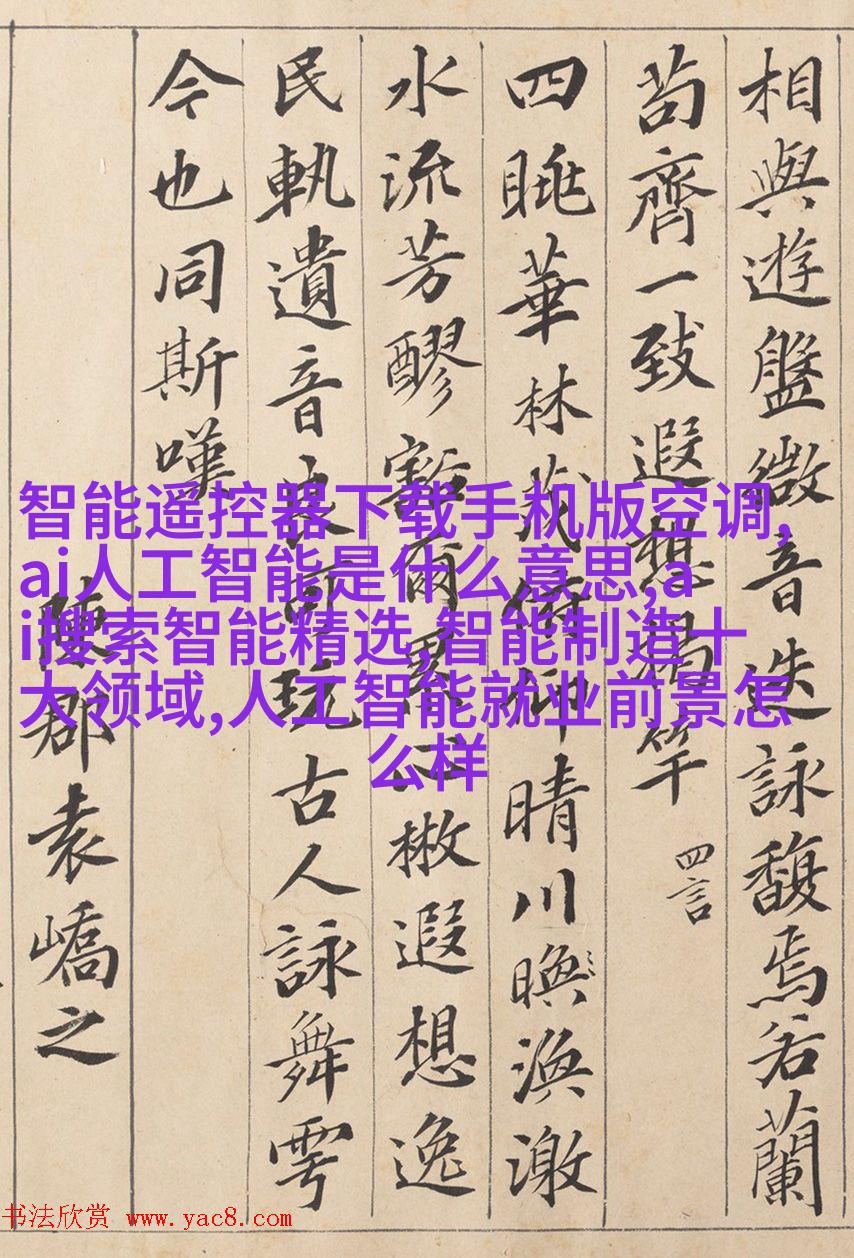 相與遊盤微音迭詠馥焉若蘭
苟齊一致遐想揭竿 四言
四眺華林茂俯仰晴川㬇渙激
水流芳醪豁爾累心散遐想逸
民軌遺音良可玩古人詠舞雩
今也同斯嘆
陳郡袁嶠之
智能遥控器下载手机版空调,
ai人工智能是什么意思,a
i搜索智能精选,智能制造十
大领域,人工智能就业前景怎
么样
书法欣赏 www.yac8.com